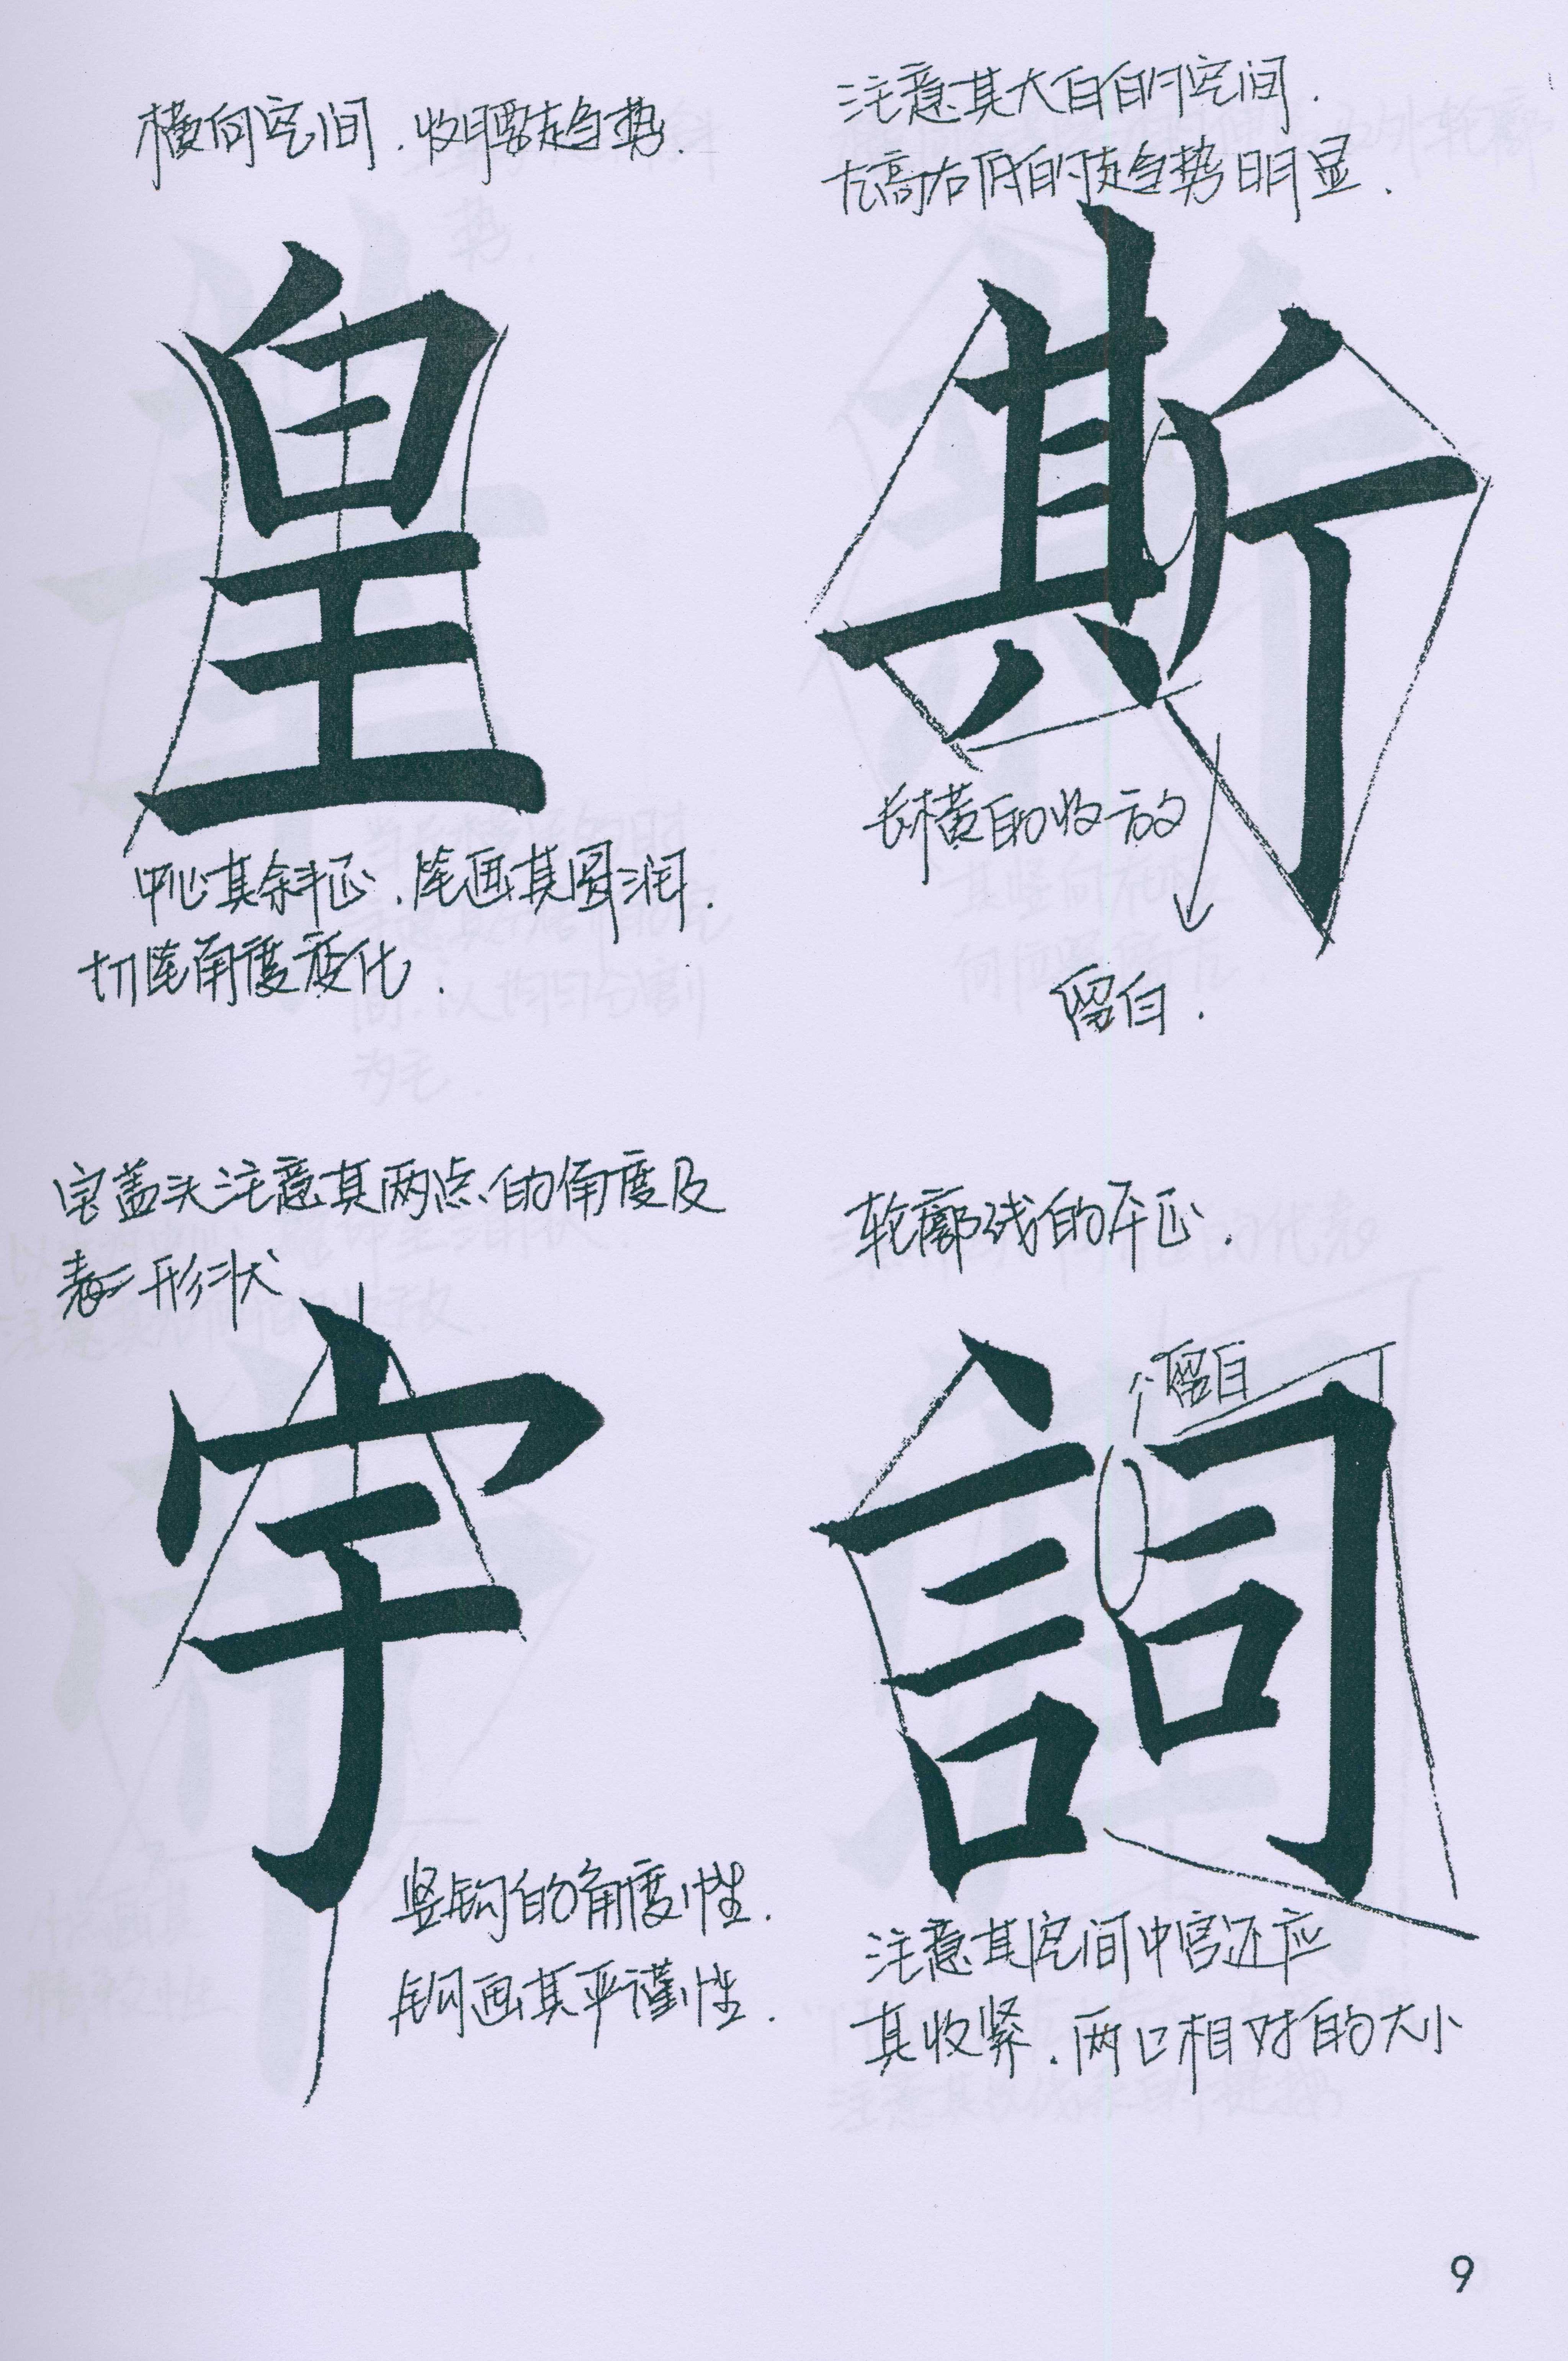 横向空间.收腰趋势.
皇
中心其斜正.笔画其圆润.
切笔角度变化.
注意其大白的空间.
左高右低的趋势明显.
斯
长横的收放
留白.
宝盖头注意其两点的角度及
形状
宇
竖钩的角度性.
钩画其严谨性.
轮廓线的平正.
留白
詞
注意其空间中宫还应
其收紧.两口相对的大小
9